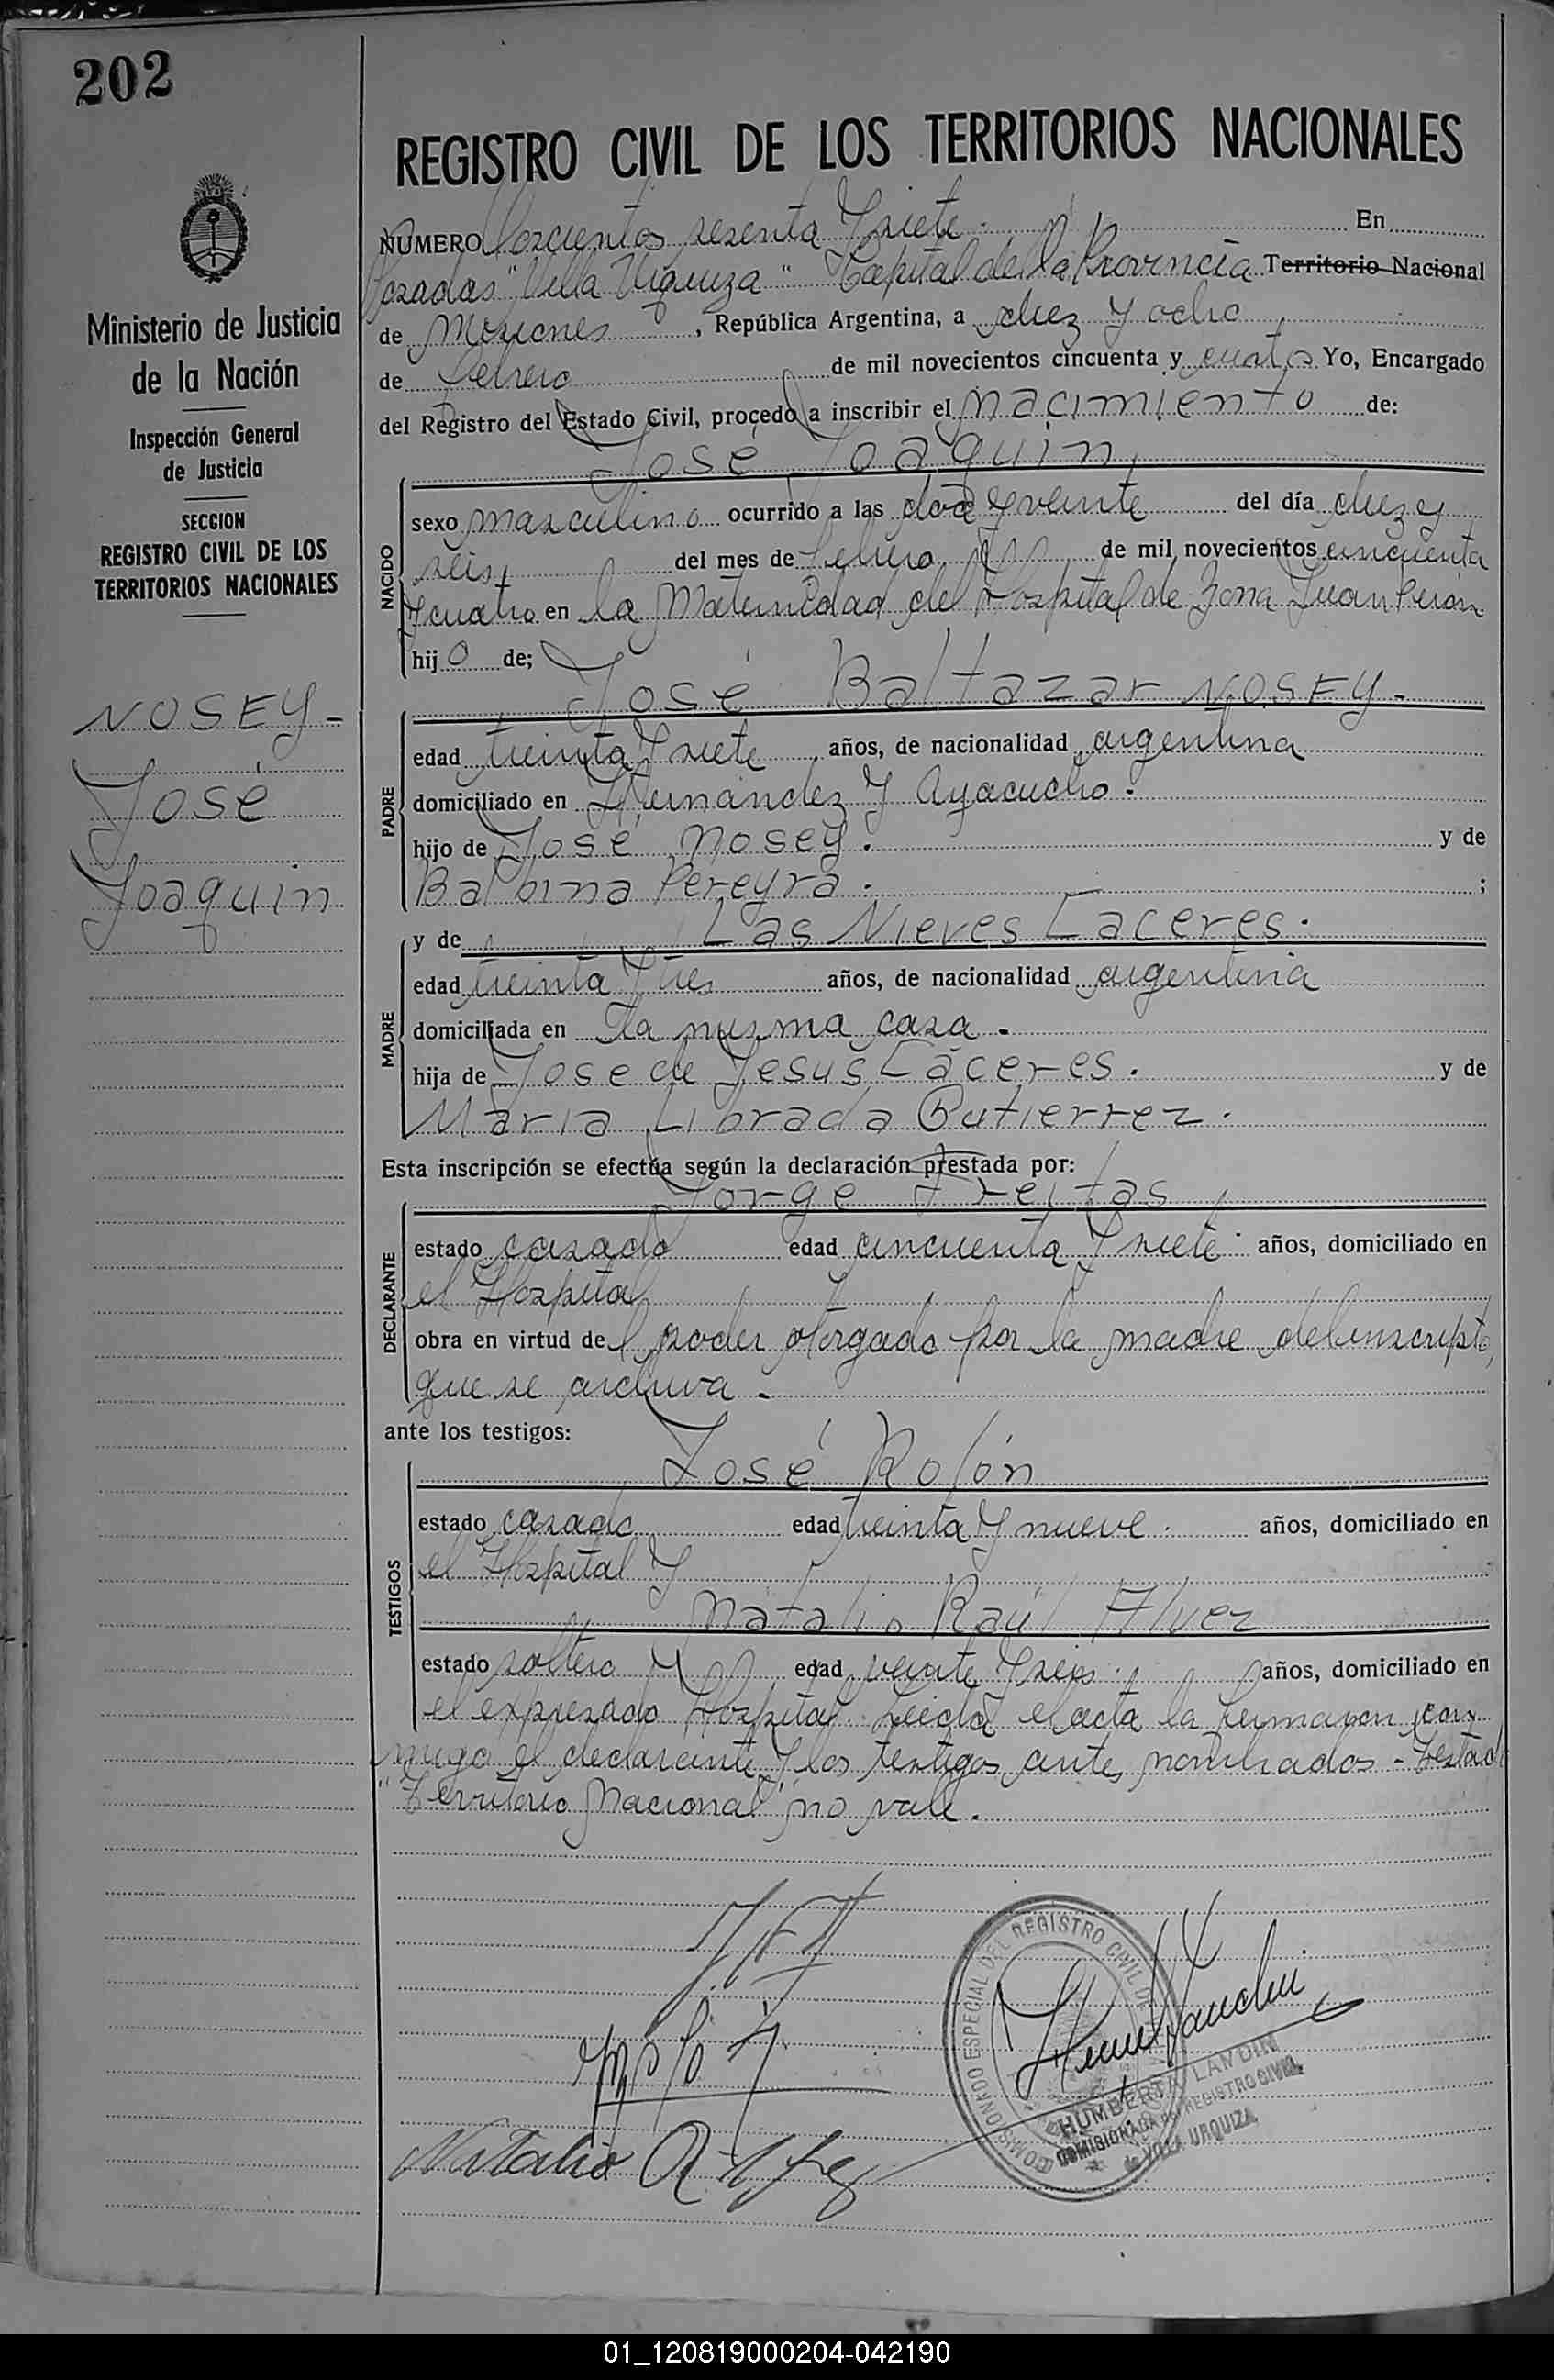 202
REGISTRO CIVIL DE LOS TERRITORIOS NACIONALES
Ministerio de Justicia
de la Nación
Inspección General
de Justicia
SECCION
REGISTRO CIVIL DE LOS
TERRITORIOS NACIONALES
NOSEY-
José
Joaquin
NUMERO Doscientos sesenta y siete. En
Posadas "Villa Urquiza" Capital de la Provincia Territorio Nacional
de Misiones, República Argentina, a diez y ocho
de febrero de mil novecientos cincuenta y cuatro Yo, Encargado
del Registro del Estado Civil, procedo a inscribir el nacimiento de:
José Joaquin,
NACIDO
sexo masculino ocurrido a las dos y veinte del día diez y
seis, del mes de febrero de mil novecientos cincuenta
y cuatro en la Maternidad del Hospital de Zona Juan Perón
hijo de;
José Baltazar NOSEY.
PADRE
edad treinta y siete años, de nacionalidad argentina
domiciliado en Hernández y Ayacucho.
hijo de José Nosey. y de
Balbina Pereyra. ;
y de Las Nieves Caceres.
MADRE
edad treinta y tres años, de nacionalidad argentina
domiciliada en la misma casa.
hija de José de Jesus Cáceres. y de
Maria Librada Gutierrez.
Esta inscripción se efectúa según la declaración prestada por:
Jorge Freitas
DECLARANTE
estado casado edad cincuenta y siete años, domiciliado en
el Hospital
obra en virtud del poder otorgado por la madre del inscripto,
que se archiva.
ante los testigos:
José Rolón
TESTIGOS
estado casado edad treinta y nueve. años, domiciliado en
el Hospital y
Natalio Raúl Alvez
estado soltero edad veinte y seis. años, domiciliado en
el expresado Hospital. Leída el acta la firmaron con-
migo el declarante y los testigos antes nombrados - Testado
"Territorio Nacional" no vale.
COMISIONADO ESPECIAL DEL REGISTRO CIVIL DE
HUMBERTA LANDIN
COMISIONADA del REGISTRO CIVIL
de VILLA URQUIZA
01_120819000204-042190